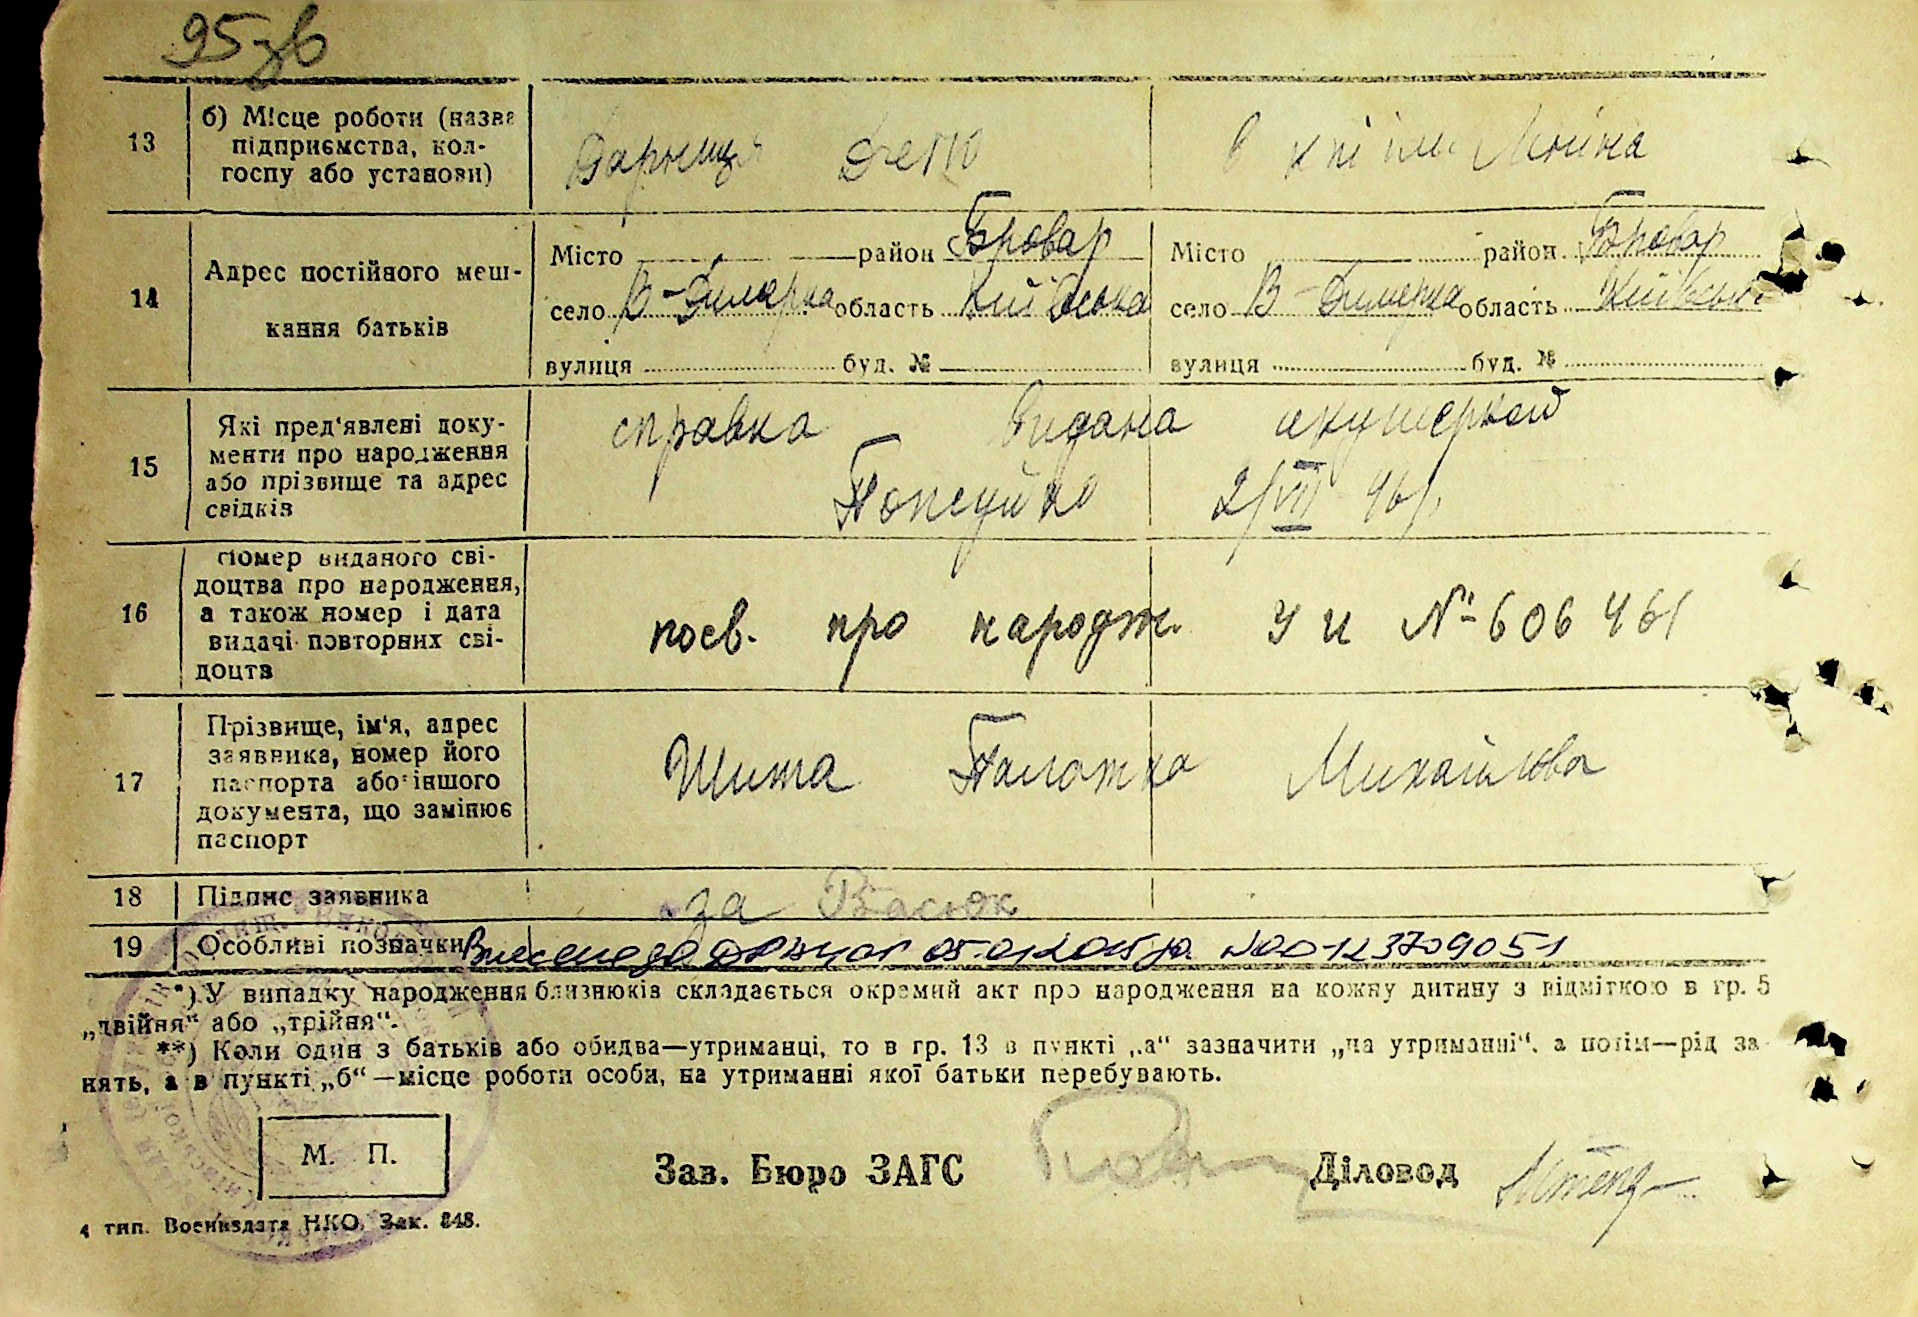 95 зв
13 б) Місце роботи (назва підприємства, колгоспу або установи) Дарниця Депо в кпі ім.
14 Адрес постійного мешкання батьків
Місто район Бровар Місто район Бровар
село В-Димерка область Київська село В-Димерка область Київськ
вулиця буд. № вулиця буд. №
15 Які пред'явлені документи про народження або прізвище та адрес свідків
справка видана акушеркой
2/VII 46 р.
16 Номер виданого свідоцтва про народження, а також номер і дата видачі повторних свідоцтв
посв. про народж. УИ № 606461
17 Прізвище, ім'я, адрес заявника, номер його паспорта або іншого документа, що замінює паспорт
Шита Палажка Михайловa
18 Підпис заявника за Васюк
19 Особливі позначки Внесено до ДРАЦСГ 05.01.2015 р. №00123709051
*) У випадку народження близнюків складається окремий акт про народження на кожну дитину з відміткою в гр. 5
„двійня“ або „трійня“.
**) Коли один з батьків або обидва—утриманці, то в гр. 13 в пункті „а“ зазначити „на утриманні“, а потім—рід за
нять, а в пункті „б“—місце роботи особи, на утриманні якої батьки перебувають.
М. П.
Зав. Бюро ЗАГС Діловод
4 тип. Воениздата НКО. Зак. 848.